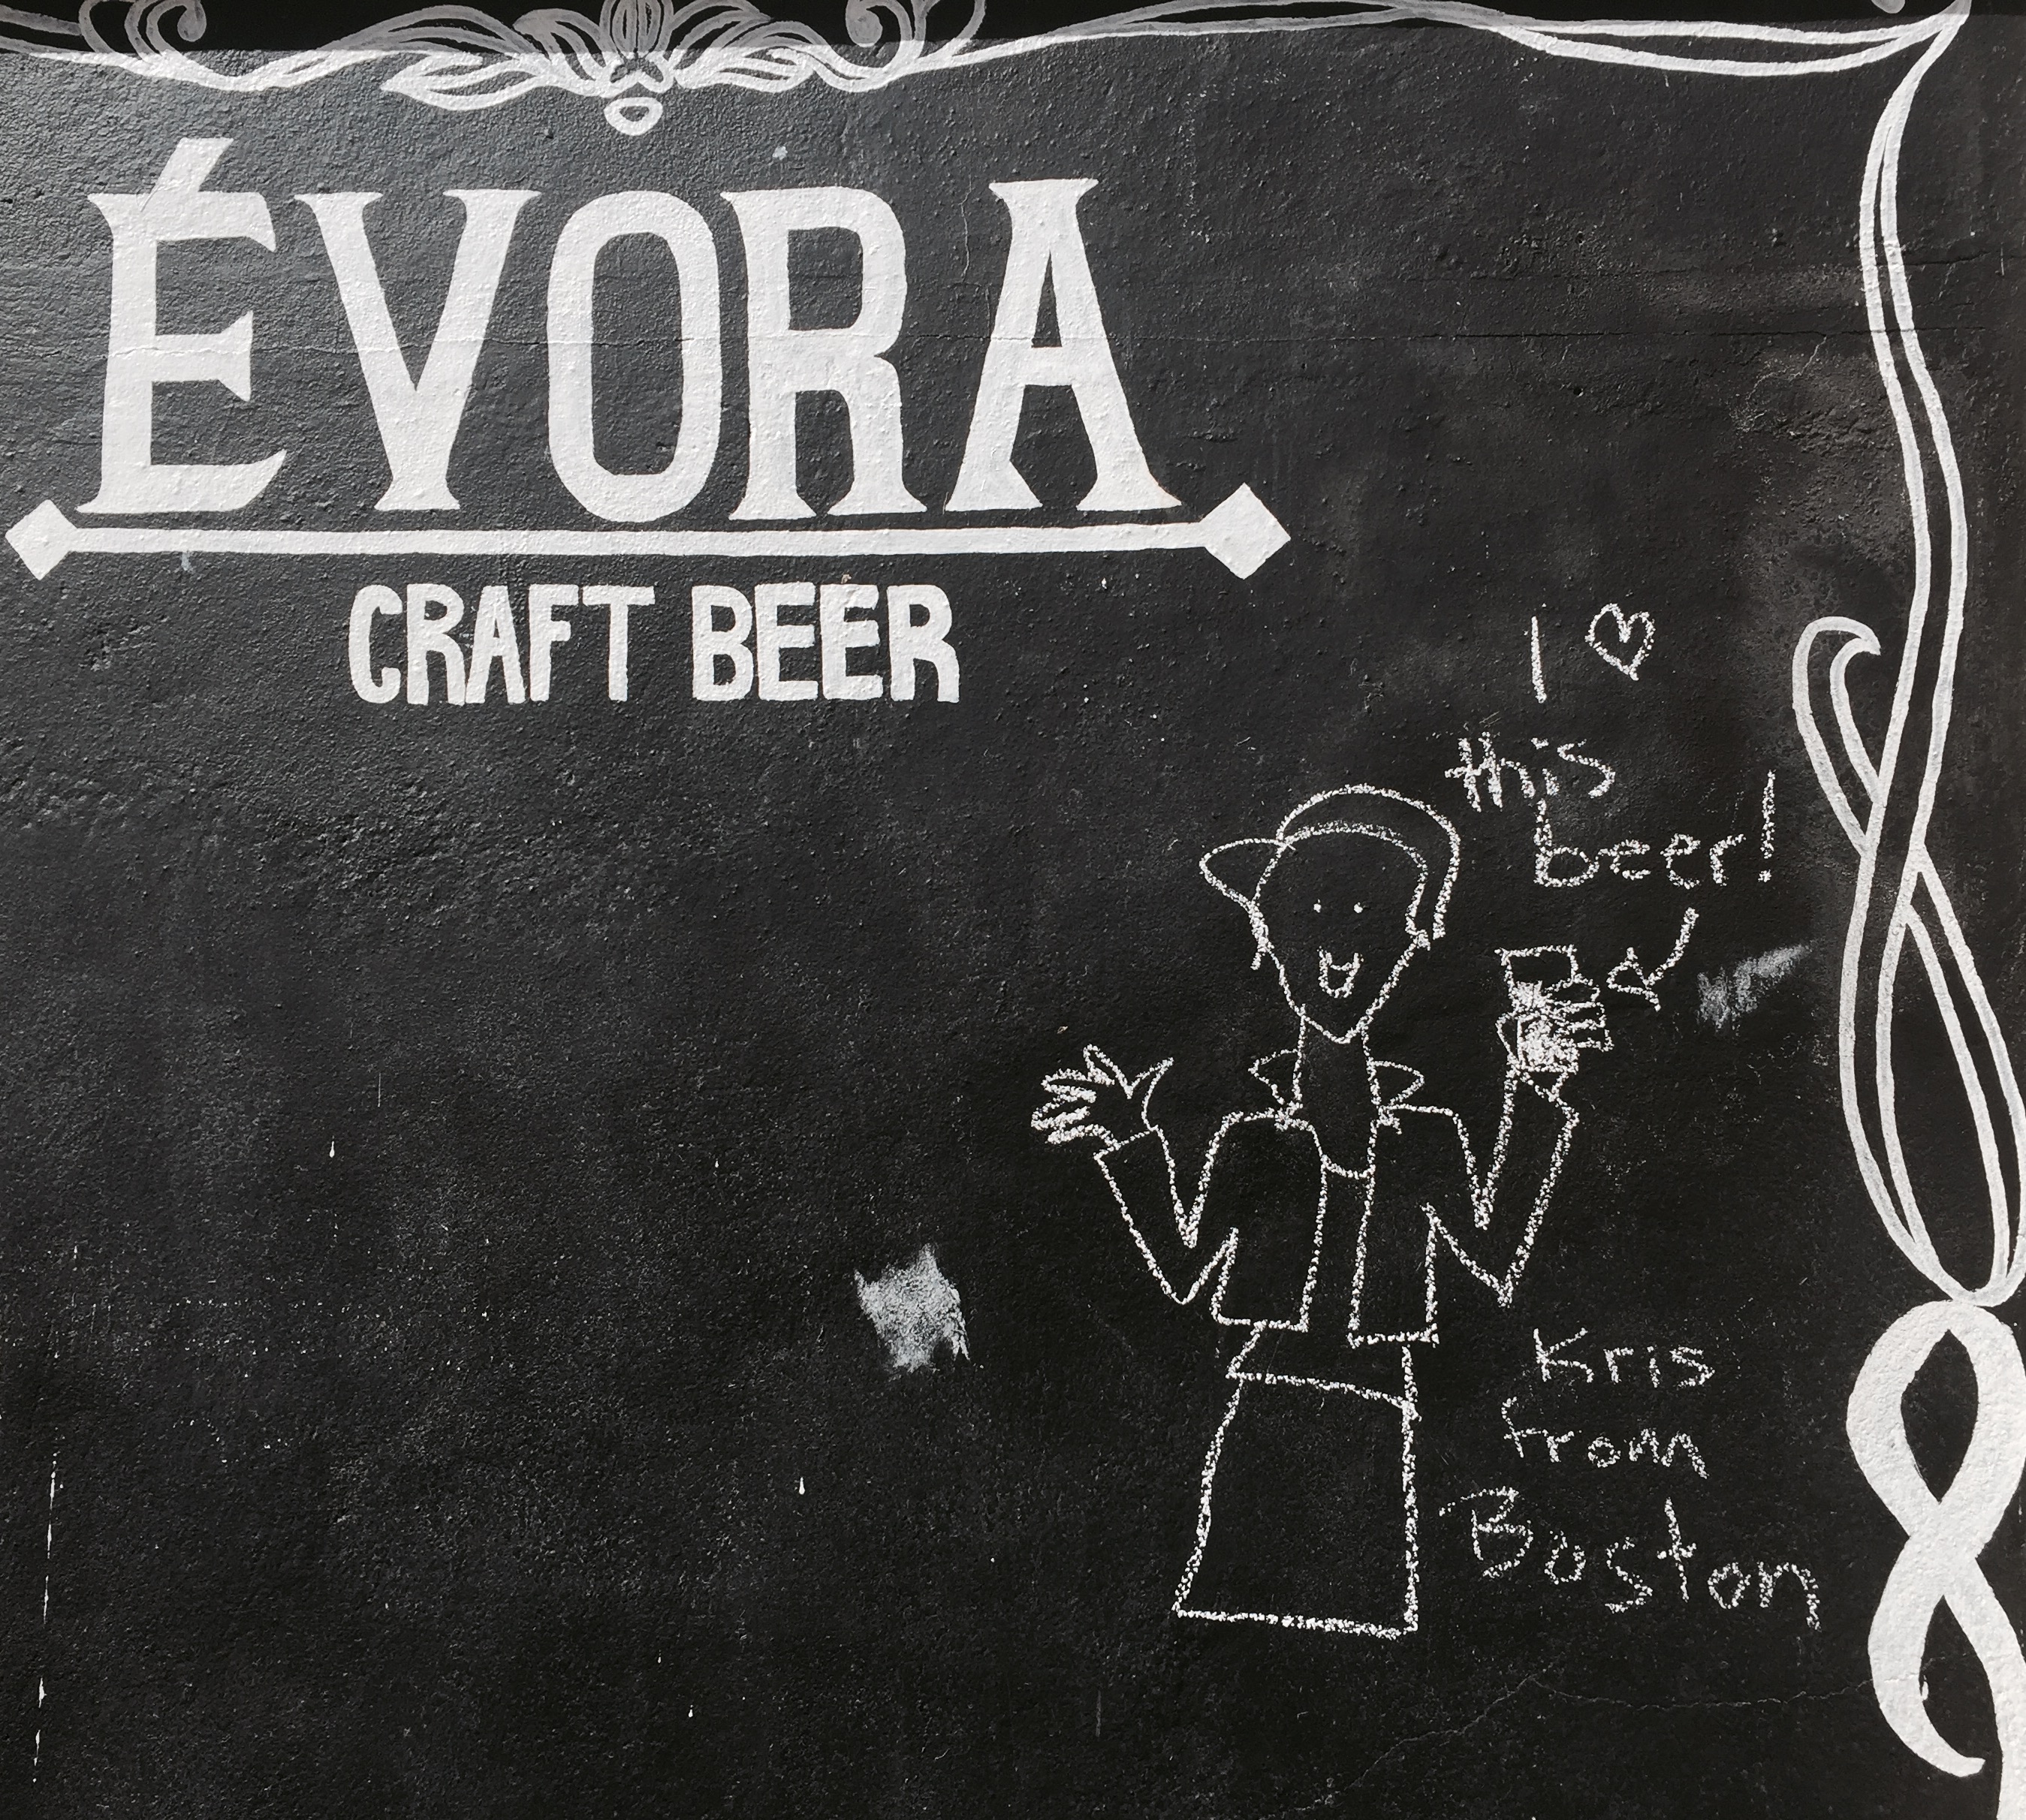 ÉVORA
CRAFT BEER
I ♡
this
beer!
Kris
from
Boston